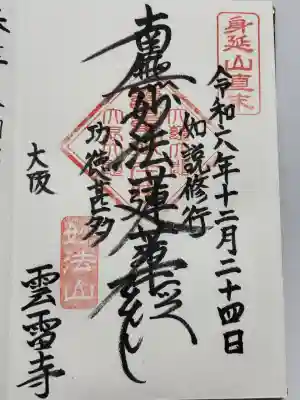 身延山直末
令和六年十二月二十四日
如説修行
南無妙法蓮華経
功徳甚多
法山
大阪
雲雷寺